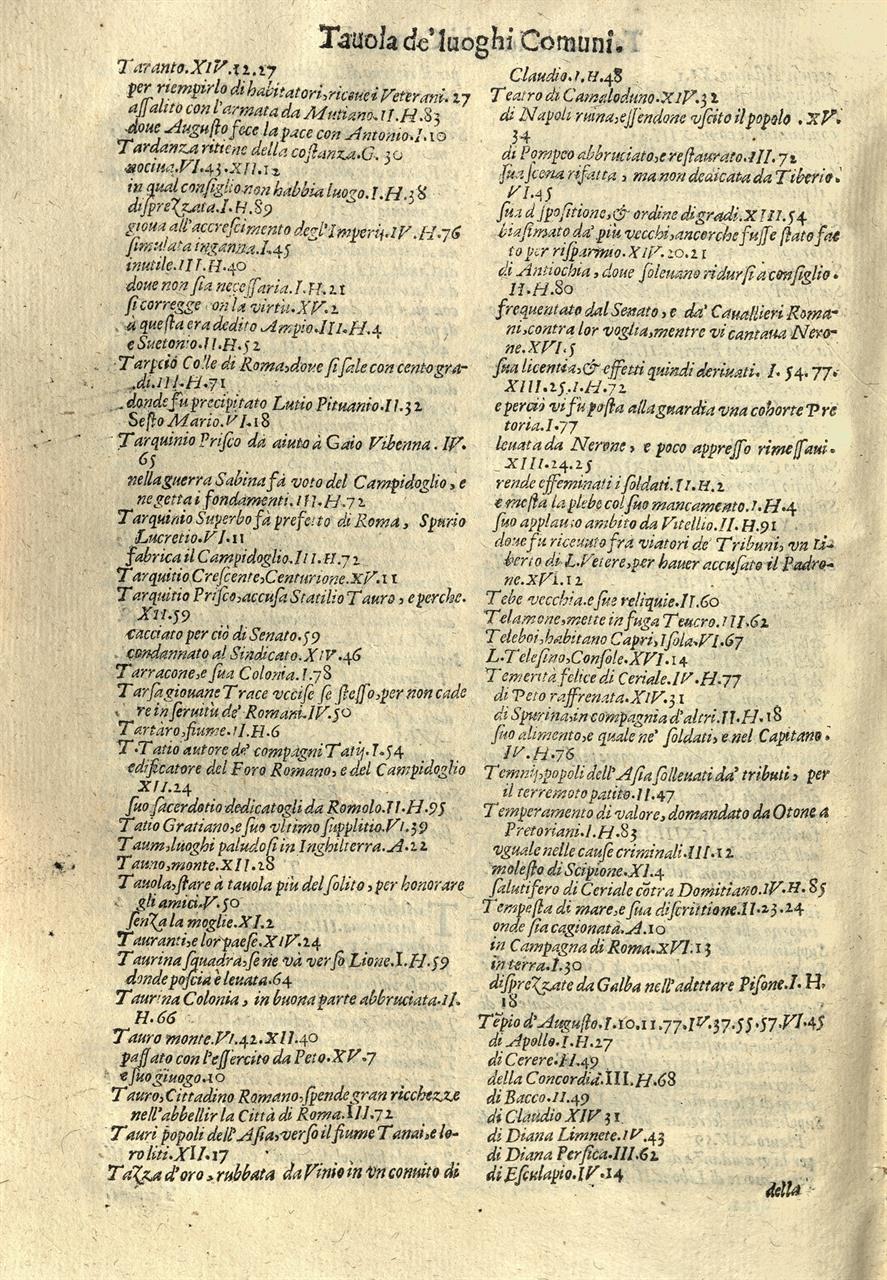 Tauola de' luoghi Comuni.
Taranto.XIV.12.27
per riempirlo di habitatori, riceue i Veterani.27
assalito con l'armata da Mutiano.II.H.83
doue Augusto fece la pace con Antonio.I.10
Tardanza ritiene della costanza.G.30
nociua.VI.43.XII.12
in qual consiglio non habbia luogo.I.H.38
disprezzata.I.H.89
gioua all'accrescimento degl'Imperij.IV.H.76
simulata inganna.I.45
inutile.III.H.40
doue non sia necessaria.I.H.21
si corregge con la virtù.XV.2
a questa era dedito Ampio.III.H.4
e Suetonio.II.H.52
Tarpeiò Colle di Roma, doue si sale con cento gra-
di.III.H.71
donde fu precipitato Lutio Pituanio.II.32
Sesto Mario.VI.18
Tarquinio Prisco dà aiuto à Gaio Vibenna. IV.
65
nella guerra Sabina fà voto del Campidoglio, e
ne getta i fondamenti.III.H.72
Tarquinio Superbo fà prefetto di Roma, Spurio
Lucretio.VI.11
fabrica il Campidoglio.III.H.72
Tarquitio Crescente, Centurione.XV.11
Tarquitio Prisco, accusa Statilio Tauro, e perche.
XII.59
cacciato per ciò di Senato.59
condannato al Sindicato.XIV.46
Tarracone, e sua Colonia.I.78
Tarsa giouane Trace vccise se stesso, per non cade
re in seruitù de' Romani.IV.50
Tartaro, fiume.II.H.6
T.Tatio autore de' compagni Tatij.I.54
edificatore del Foro Romano, e del Campidoglio
XII.24
suo sacerdotio dedicatogli da Romolo.II.H.95
Tatio Gratiano, e suo vltimo supplitio.VI.39
Taum, luoghi paludosi in Inghilterra.A.22
Tauno, monte.XII.28
Tauola, stare à tauola più del solito, per honorare
gli amici.V.50
senza la moglie.XI.2
Tauranti, e lor paese.XIV.24
Taurina squadra, se ne và verso Lione.I.H.59
donde poscia è leuata.64
Taurina Colonia, in buona parte abbruciata.II.
H.66
Tauro monte.VI.42.XII.40
passato con l'essercito da Peto.XV.7
e suo giuogo.10
Tauro, Cittadino Romano, spende gran ricchezze
nell'abbellir la Città di Roma.III.72
Tauri popoli dell'Asia, verso il fiume Tanai, e lo-
ro liti.XII.17
Tazza d'oro, rubbata da Vinio in vn conuito di
Claudio.I.H.48
Teatro di Camaloduno.XIV.32
di Napoli ruina, essendone vscito il popolo .XV.
34
di Pompeo abbruciato, e restaurato.III.72
sua scena rifatta, ma non dedicata da Tiberio.
VI.45
sua dispositione, & ordine di gradi.XIII.54
biasimato da' più vecchi, ancorche fusse stato fat
to per risparmio.XIV.20.21
di Antiochia, doue soleuano ridursi a consiglio.
II.H.80
frequentato dal Senato, e da' Cauallieri Roma-
ni, contra lor voglia, mentre vi cantaua Nero-
ne.XVI.5
sua licentia, & effetti quindi deriuati. I.54.77.
XIII.25.I.H.72
e perciò vi fu posta alla guardia vna cohorte Pre
toria.I.77
leuata da Nerone, e poco appresso rimessaui.
XIII.24.25
rende effeminati i soldati.II.H.2
e mesta la plebe col suo mancamento.I.H.4
suo applauso ambito da Vitellio.II.H.91
doue fu riceuuto frà viatori de' Tribuni, vn Li-
berto di L.Vetere, per hauer accusato il Padro-
ne.XVI.12
Tebe vecchia.e sue reliquie.II.60
Telamone, mette in fuga Teucro.III.62
Teleboi, habitano Capri, Isola.VI.67
L.Telesino, Console.XVI.14
Temerità felice di Ceriale.IV.H.77
di Peto raffrenata.XIV.31
di Spurina, in compagnia d'altri.II.H.18
suo alimento, e quale ne' soldati, e nel Capitano.
IV.H.76
Temnij, popoli dell'Asia solleuati da' tributi, per
il terremoto patito.II.47
Temperamento di valore, domandato da Otone a
Pretoriani.I.H.83
vguale nelle cause criminali.III.12
molesto di Scipione.XI.4
salutifero di Ceriale cõtra Domitiano.IV.H.85
Tempesta di mare, e sua discrittione.II.23.24
onde sia cagionata.A.10
in Campagna di Roma.XVI.13
in terra.I.30
disprezzate da Galba nell'adottare Pisone.I.H.
18
Tẽpio d'Augusto.I.10.11.77.IV.37.55.57.VI.45
di Apollo.I.H.27
di Cerere.H.49
della Concordia.III.H.68
di Bacco.II.49
di Claudio XIV 31
di Diana Limnete.IV.43
di Diana Persica.III.62
di Esculapio.IV.14
della